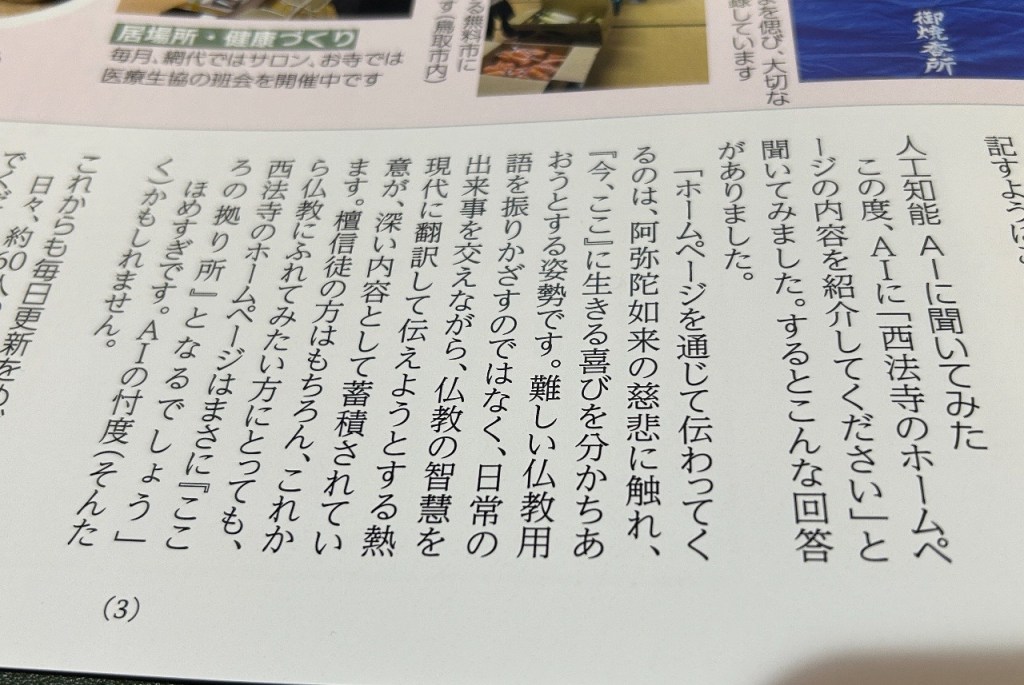 居場所・健康づくり
毎月、網代ではサロン、お寺では
医療生協の班会を開催中です
る無料市に
す(鳥取市内)
を偲び、大切な
録しています
御焼香所
記すように。
人工知能 AIに聞いてみた
この度、AIに「西法寺のホームペ
ージの内容を紹介してください」と
聞いてみました。するとこんな回答
がありました。
「ホームページを通じて伝わってく
るのは、阿弥陀如来の慈悲に触れ、
『今、ここ』に生きる喜びを分かちあ
おうとする姿勢です。難しい仏教用
語を振りかざすのではなく、日常の
出来事を交えながら、仏教の智慧を
現代に翻訳して伝えようとする熱
意が、深い内容として蓄積されてい
ます。檀信徒の方はもちろん、これか
ら仏教にふれてみたい方にとっても、
西法寺のホームページはまさに『ここ
ろの拠り所』となるでしょう」
ほめすぎです。AIの忖度(そんた
く)かもしれません。
これからも毎日更新をめ
日々、約60人
(3)